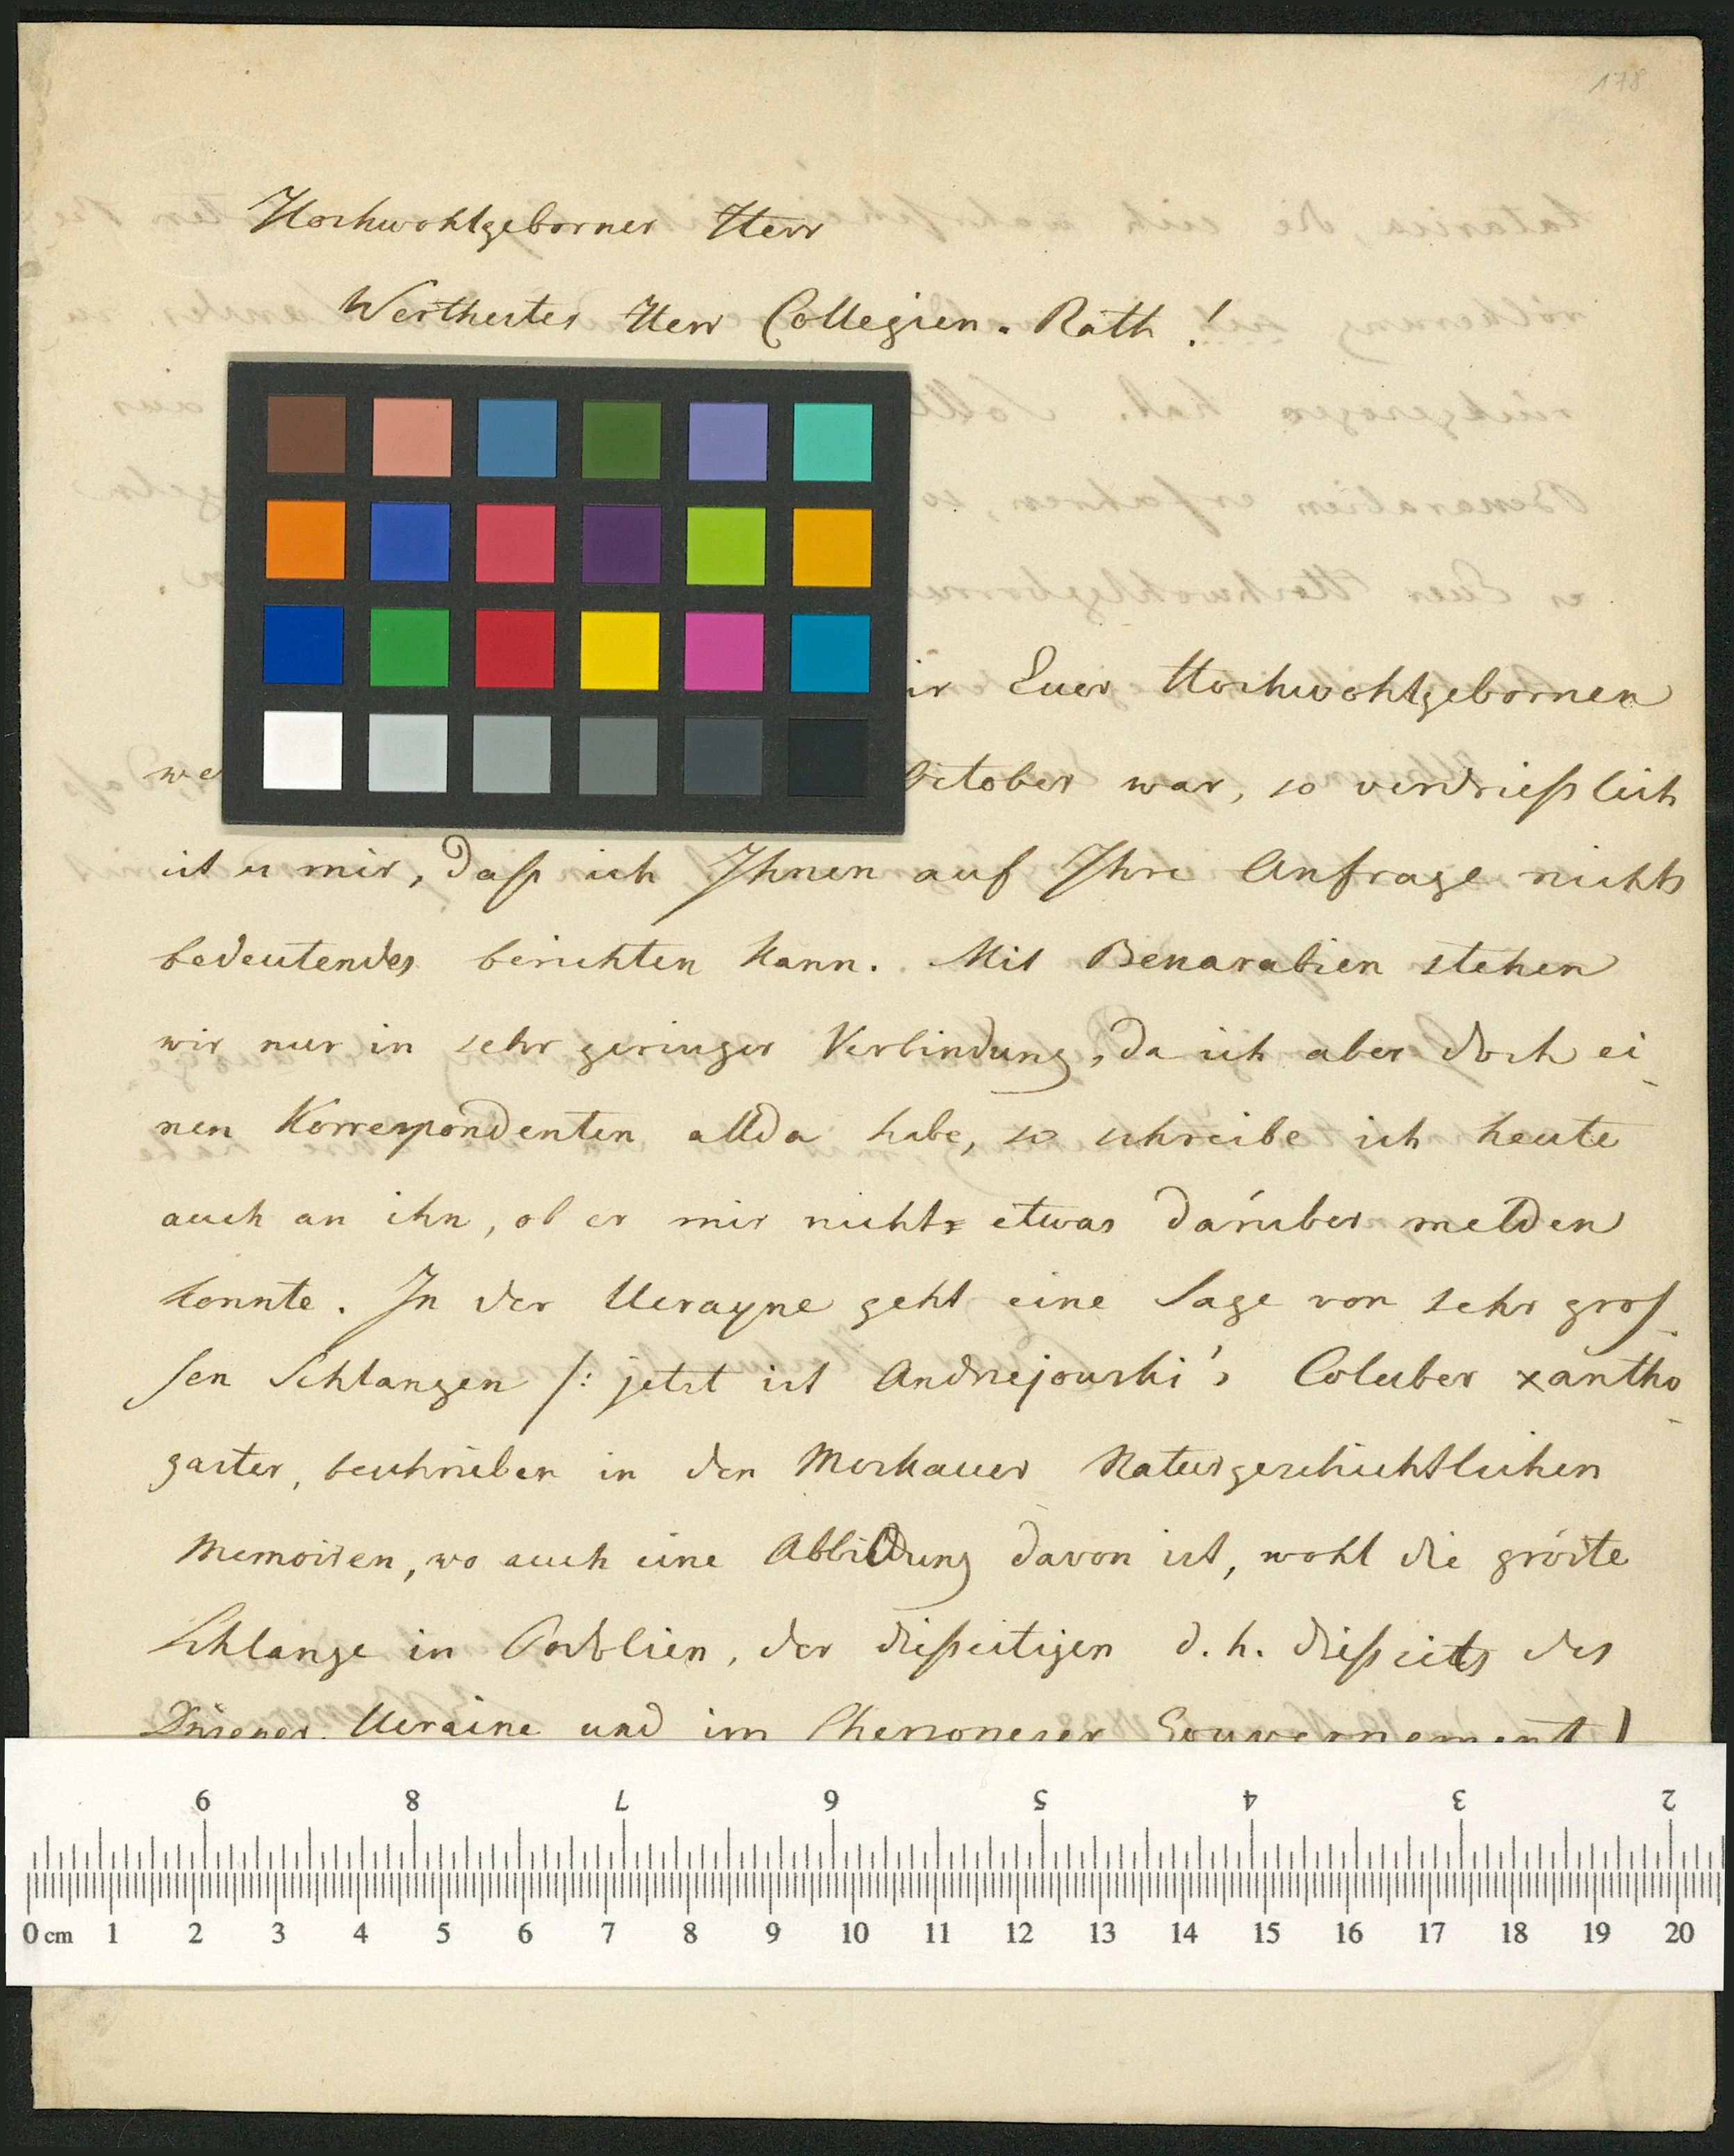 178
Hochwohlgeborner Herr
Werthester Herr Collegien-Rath!
ir Euer Hochwohlgebornen
we
October war, so verdrießlich
ist es mir, daß ich Ihnen auf Ihre Anfrage nichts
bedeutendes berichten kann. Mit Bessarabien stehen
wir nur in sehr geringer Verbindung, da ich aber doch ei-
nen Korrespondenten allda habe, so schreibe ich heute
auch an ihn, ob er mir nicht etwas darüber melden
konnte. In der Ucrayne geht eine Sage von sehr gros-
sen Schlangen /: jetzt ist Andrejowski's Coluber xantho-
gaster, beschrieben in den Moskauer Naturgeschichtlichen
Memoiren, wo auch eine Abbildung davon ist, wohl die gröste
Schlange in Podolien, der dießeitigen d. h. dießeits des
Ucraine und im Chersoneser Gouvernement)
9 8 7 6 5 4 3 2
0 cm 1 2 3 4 5 6 7 8 9 10 11 12 13 14 15 16 17 18 19 20